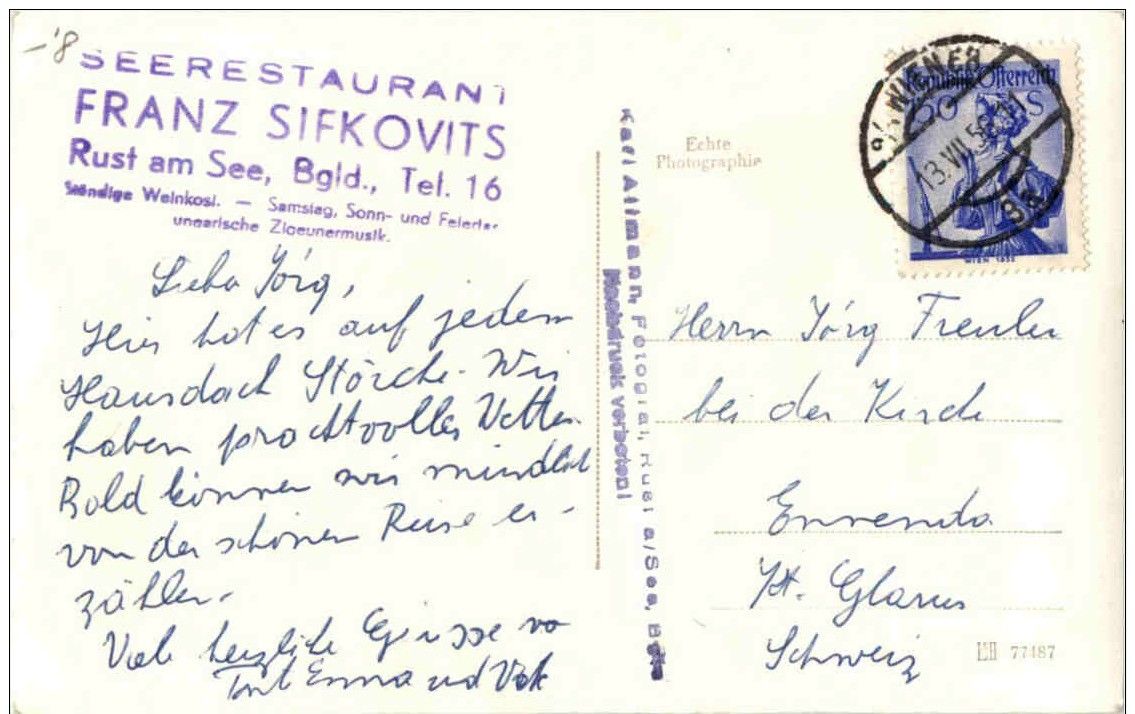 -'8
SEERESTAURANT
FRANZ SIFKOVITS
Rust am See, Bgld., Tel. 16
Ständige Weinkost. — Samstag, Sonn- und Feiertag
ungarische Zigeunermusik.
Lieber Jörg,
Hier hat es auf jedem
Hausdach Störche. Wir
haben prachtvolles Wetter.
Bald können wir mündlich
von der schönen Reise er-
zählen.
Viele herzliche Grüsse von
Emma und
Karl Altmann, Fotograf, Rust a/See, Bgld
Nachdruck verboten!
Echte
Photographie
Republik Österreich
S
WIEN
13.VII.56
8a
Herrn Jörg Freuler
bei der Kirche
Ennenda
Kt. Glarus
Schweiz
77487